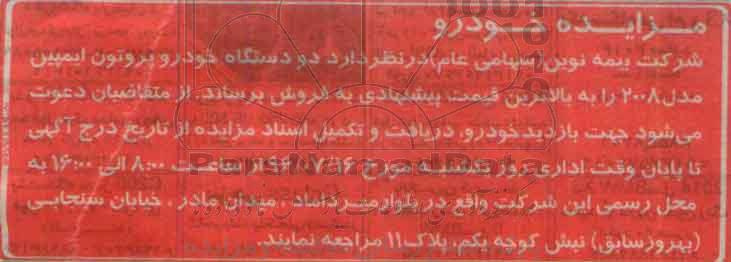 مزایده خودرو
شرکت بیمه نوین (سهامی عام) در نظر دارد دو دستگاه خودرو پروتون ایمپین
مدل ۲۰۰۸ را به بالاترین قیمت پیشنهادی به فروش برساند. از متقاضیان دعوت
می‌شود جهت بازدید خودرو، دریافت و تکمیل اسناد مزایده از تاریخ درج آگهی
تا پایان وقت اداری روز یکشنبه مورخ ۹۶/۰۷/۱۶ از ساعت ۸:۰۰ الی ۱۶:۰۰ به
محل رسمی این شرکت واقع در بلوار میرداماد، میدان مادر، خیابان سنجابی
(بهروز سابق) نبش کوچه یکم، پلاک ۱۱ مراجعه نمایند.